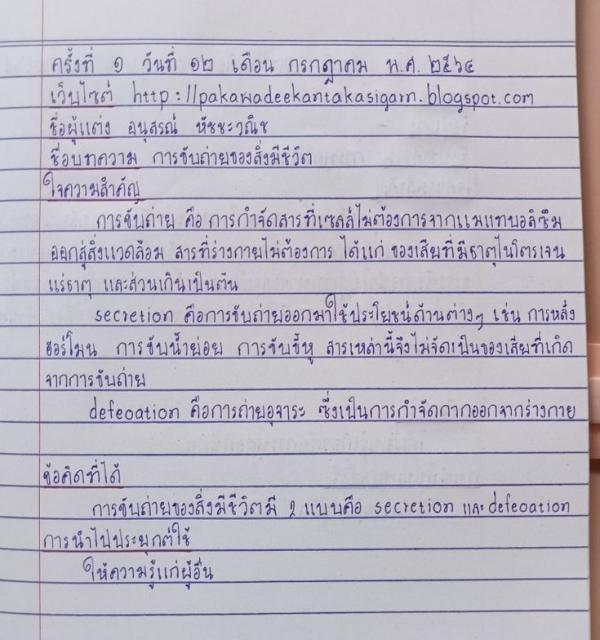 ครั้งที่ ๑ วันที่ ๑๒ เดือน กรกฎาคม พ.ศ. ๒๕๖๔
เว็บไซต์ http://pakawadeekantakasigarn.blogspot.com
ชื่อผู้แต่ง อนุสรณ์ หัชชะวณิช
ชื่อบทความ การขับถ่ายของสิ่งมีชีวิต
ใจความสำคัญ
การขับถ่าย คือ การกำจัดสารที่เซลล์ไม่ต้องการจากเมแทบอลิซึม
ออกสู่สิ่งแวดล้อม สารที่ร่างกายไม่ต้องการ ได้แก่ ของเสียที่มีธาตุไนโตรเจน
แร่ธาตุ และส่วนเกินเป็นต้น
secretion คือการขับถ่ายออกมาใช้ประโยชน์ด้านต่างๆ เช่น การหลั่ง
ฮอร์โมน การขับน้ำย่อย การขับขี้หู สารเหล่านี้จึงไม่จัดเป็นของเสียที่เกิด
จากการขับถ่าย
defeoation คือการถ่ายอุจาระ ซึ่งเป็นการกำจัดกากออกจากร่างกาย
ข้อคิดที่ได้
การขับถ่ายของสิ่งมีชีวิตมี 2 แบบคือ secretion และ defeoation
การนำไปประยุกต์ใช้
ให้ความรู้แก่ผู้อื่น